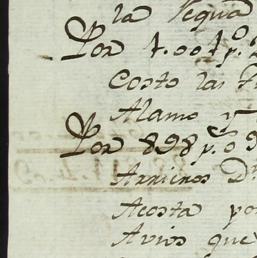 la Yegua
Por 7.007 p.s
Costo las
Alamo y
Por 898 p.s 9
Arrieros D.n
Acosta po
Avios que